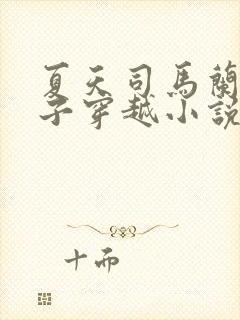 夏天司馬蘭
子穿越小說
十而